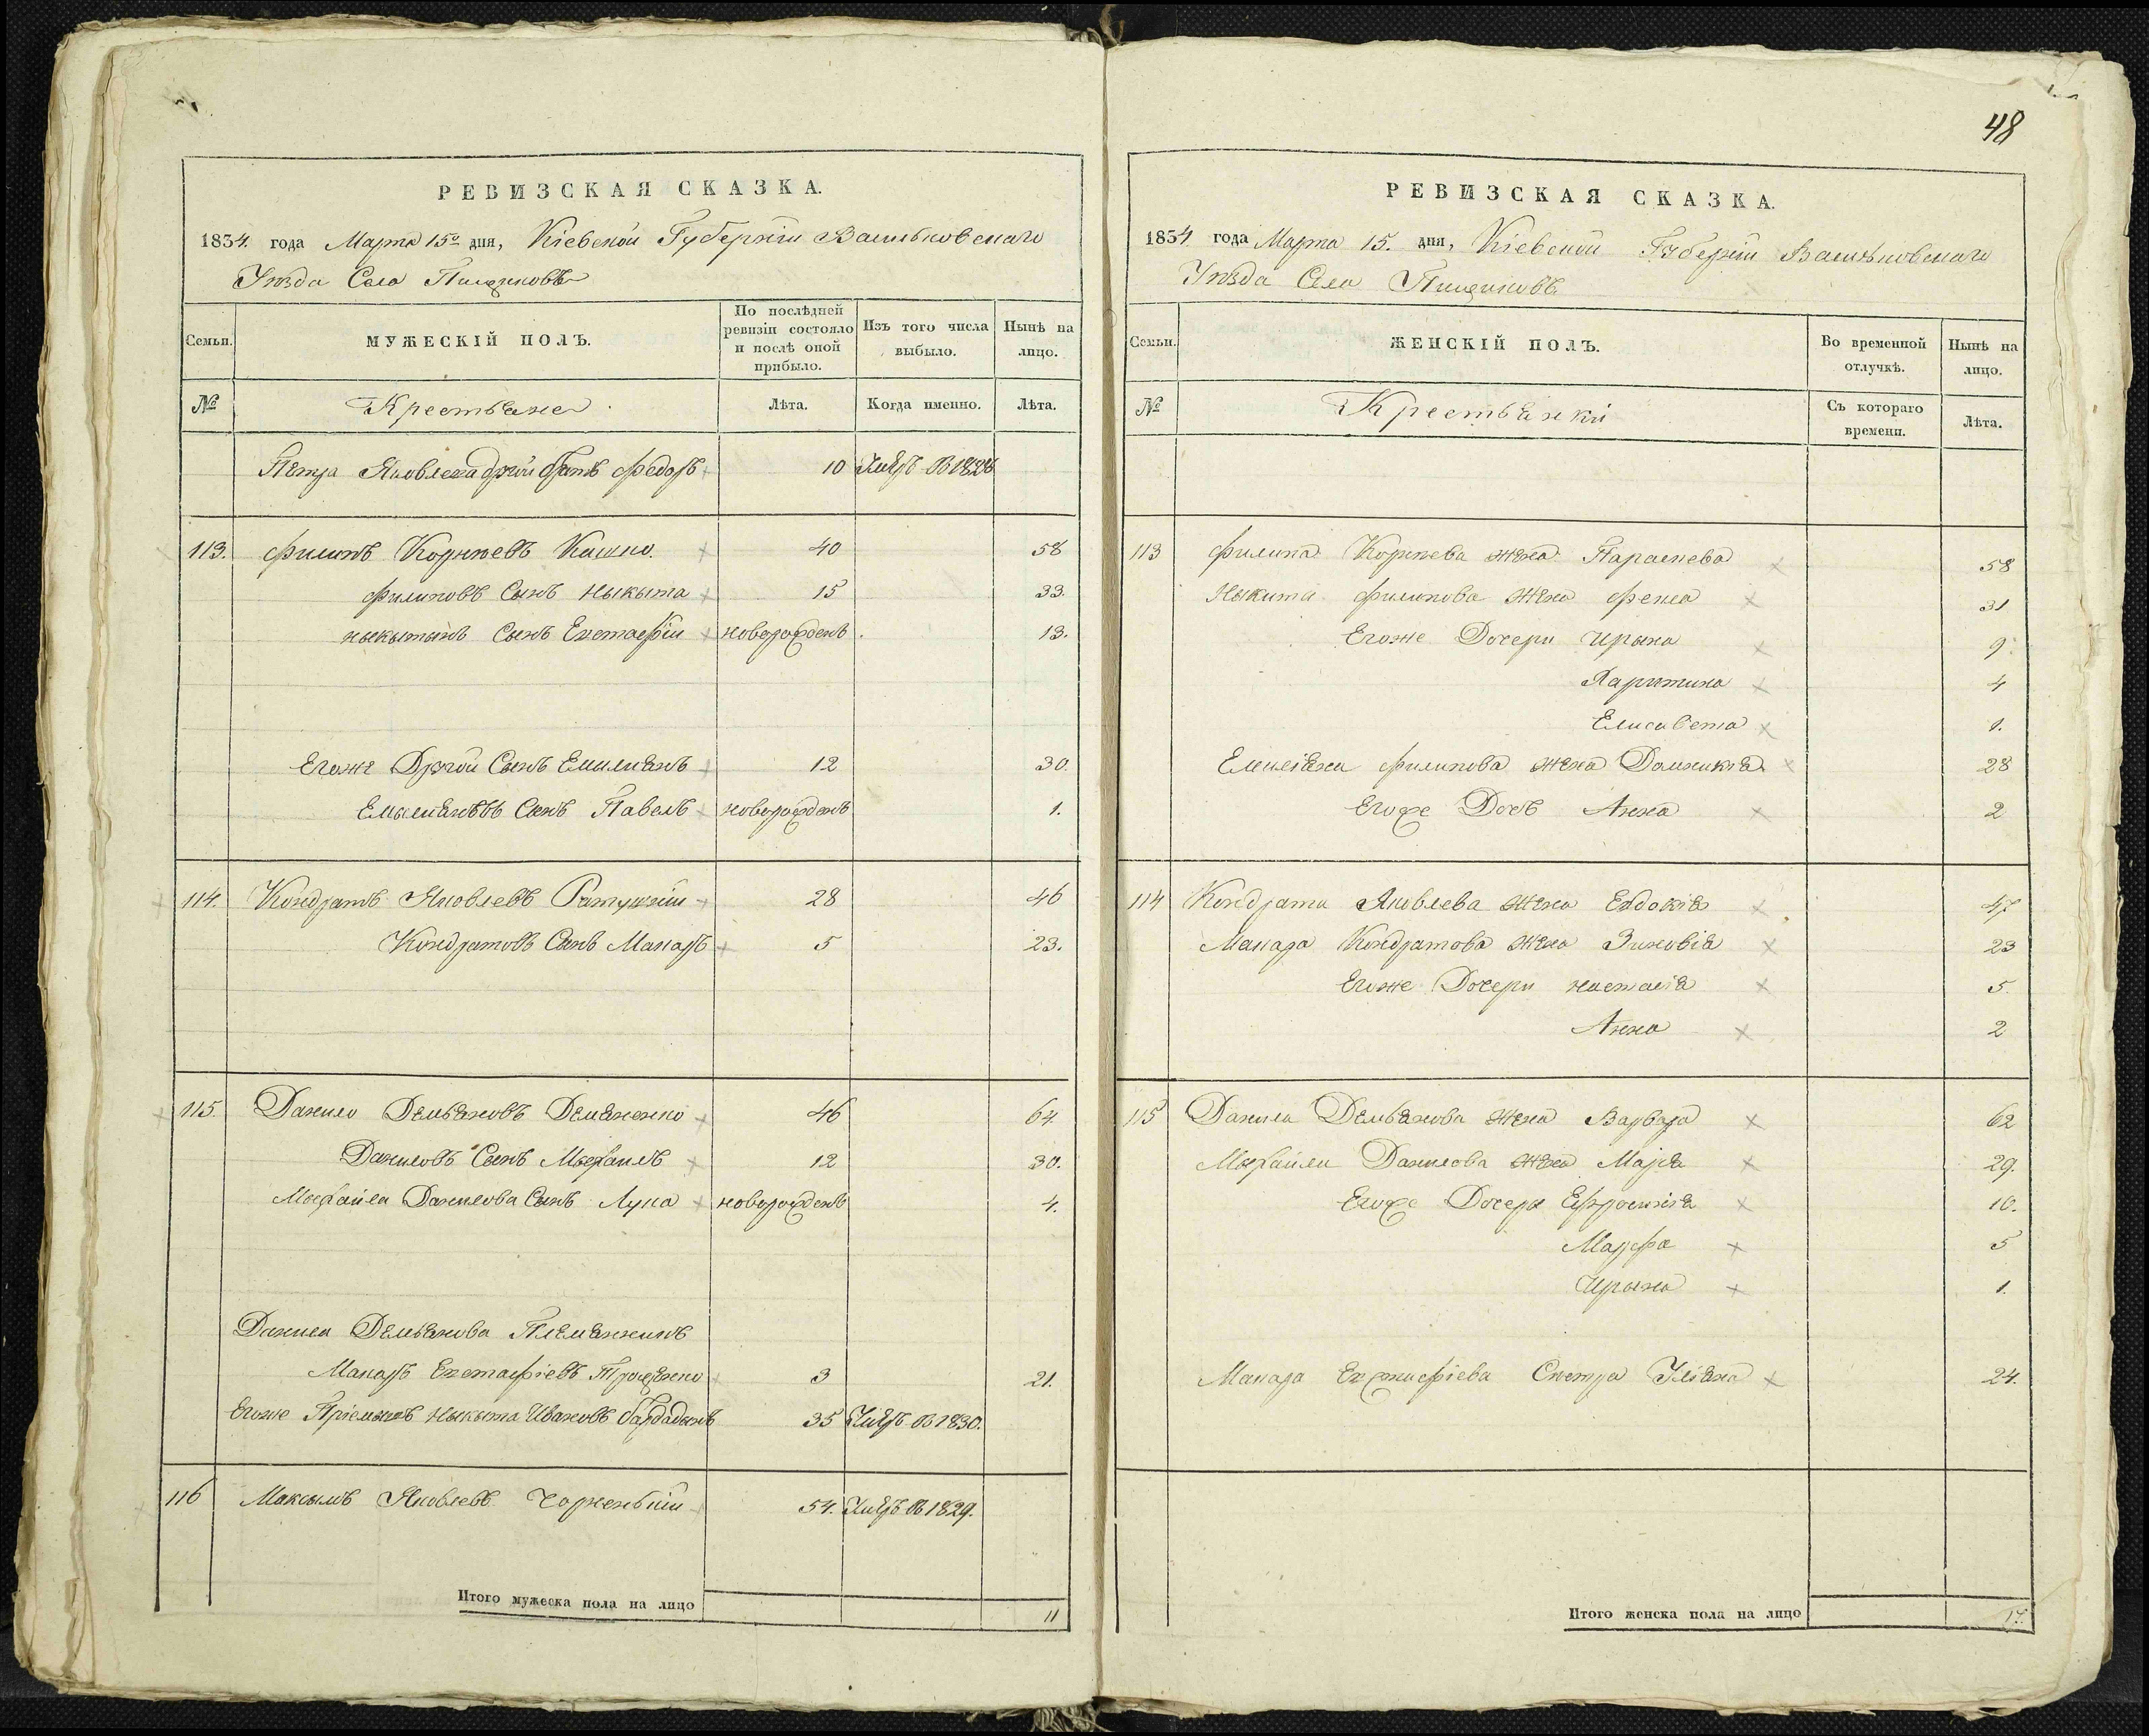 48
РЕВИЗСКАЯ СКАЗКА.
1834. года Марта 15го дня, Кіевской Губерніи Васильковскаго
Уѣзда Села Пищиковъ
Семьи. МУЖЕСКІЙ ПОЛЪ. По послѣдней ревизіи состояло и послѣ оной прибыло. Изъ того числа выбыло. Нынѣ на лицо.
№ Крестьяне Лѣта. Когда именно. Лѣта.
Петра Яковлева другой братъ Федоръ 10 Умеръ въ 1826
113. Филипъ Корнѣевъ Кашко. 40 58
Филиповъ Сынъ Ныкыта 15 33.
Ныкытынъ Сынъ Евстафій новорожденъ 13.
Егоже Другой Сынъ Емилианъ 12 30.
Емылиановъ Сынъ Павелъ новорожденъ 1.
114. Кондратъ Яковлевъ 28 46
Кондратовъ Сынъ Макаръ 5 23.
115. Данило Демьяновъ Демяненко 46 64.
Даниловъ Сынъ Мыхаилъ 12 30.
Мыхайла Данилова Сынъ Лука новорожденъ 4.
Данила Демьянова Племянникъ
Макаръ Евстафіевъ 3 21.
Егоже Пріемышъ Ныкыта Ивановъ 35 Умеръ въ 1830.
116 Максымъ Яковлевъ Чорненькій 54. Умеръ въ 1829.
Итого мужеска пола на лицо 11
РЕВИЗСКАЯ СКАЗКА.
1834 года Марта 15. дня, Кіевской Губерніи Васильковскаго
Уѣзда Села Пищиковъ
Семьи. ЖЕНСКІЙ ПОЛЪ. Во временной отлучкѣ. Нынѣ на лицо.
№ Крестьянки Съ котораго времени. Лѣта.
113 Филипа Корнѣева жена Параскева 58
Ныкита Филипова жена Фенна 31
Егоже Дочери Ирына 9
Харитина 4
Елисавета 1.
Емилiана Филипова жена Домникія 28
Егоже Дочь Анна 2
114 Кондрата Яковлева жена Евдокія 47
Макара Кондратова жена Зиновія 23
Егоже Дочери Настасія 5.
Анна 2
115 Данила Демьянова жена Варвара 62
Мыхайла Данилова жена Марія 29.
Егоже Дочери Ефросинія 10.
Марфа 5
Ирына 1.
Макара Евстафіева Сестра Уліяна 24.
Итого женска пола на лицо 17.